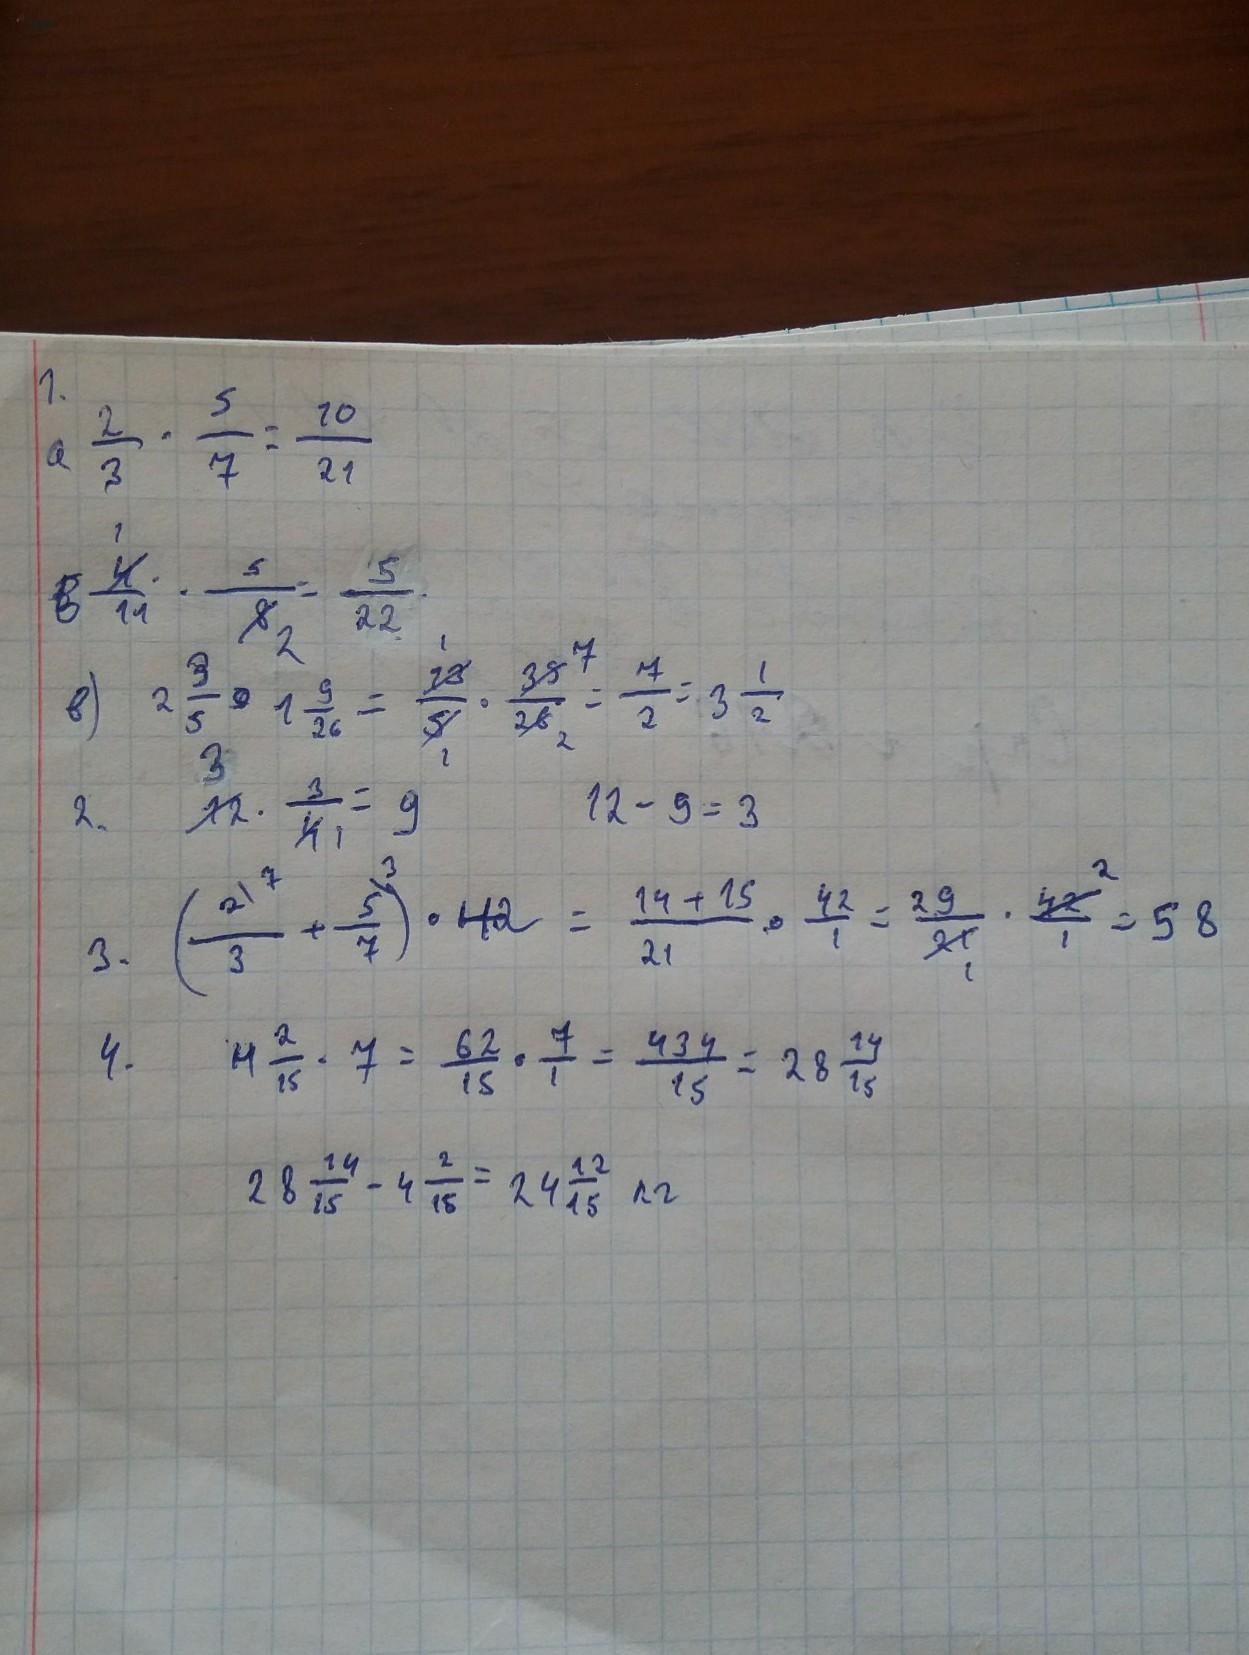 1.
а 2/3 · 5/7 = 10/21
б 4/11 · 5/8 = 5/22
в) 2 3/5 · 1 9/26 = 13/5 · 35/26 = 7/2 = 3 1/2
2. 12 · 3/4 = 9 12 - 9 = 3
3. (2/3 + 5/7) · 42 = 14 + 15/21 · 42/1 = 29/21 · 42/1 = 58
4. 4 2/15 · 7 = 62/15 · 7/1 = 434/15 = 28 14/15
28 14/15 - 4 2/15 = 24 12/15 кг